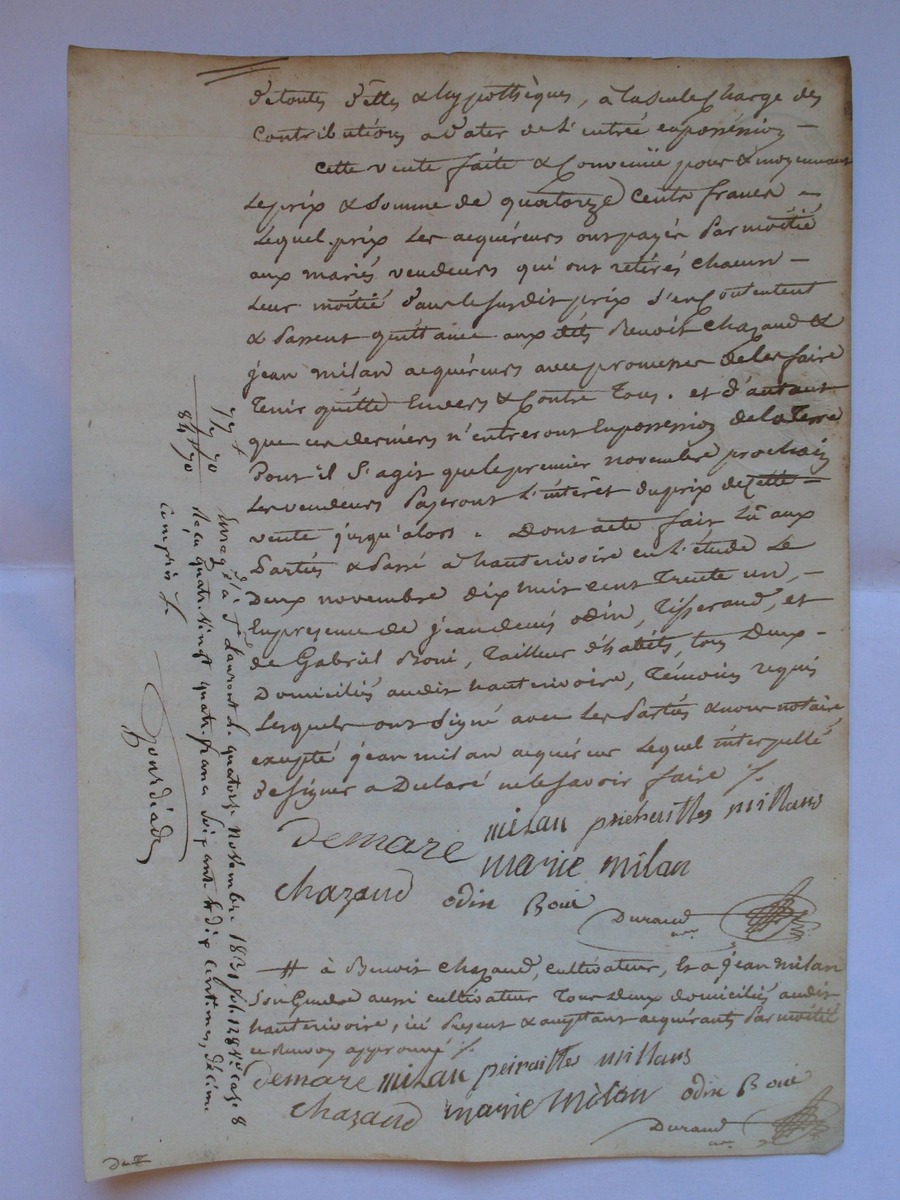 de toutes dettes & hypothèques, à la seule charge des
Contributions a dater de l'entrée en possession —
Cette vente faite & Convenüe pour & moyennant
Le prix & Somme de quatorze Cents francs —
Lequel prix Les acquéreurs ont payés Par moitié
aux mariés vendeurs qui ont retirés chacun —
Leur moitié dans le susdit prix s'en Contentent
& Passent quittance aux dits Benoit Chazaud &
jean milan acquéreurs avec promesse de les faire
Tenir quitte Envers & Contre Tous. et d'autant
que ces derniers n'entreront En possession de la Terre
Dont il S'agit que le premier novembre prochain
Les vendeurs Payeront L'intérêt du prix de Cette —
vente jusqu'alors. Dont acte fait Lû aux
Parties & Passé à hauterivoire en L'étude Le
Deux novembre dix huit cent Trente un, —
En présence de jean denis odin, Tisserand, et
de Gabriel Boni, Tailleur d'habits, tous Deux —
Domiciliés audit hauterivoire, Témoins requis
Lesquels ont Signé avec Les Parties & nous notaire
excepté jean milan acquéreur Lequel interpellé
de Signer a Déclaré ne le Savoir faire
Demare milan millans
marie milan
Chazaud odin Boni
Durand
# à Benoit Chazaud, cultivateur, Et a jean milan
Son Gendre aussi cultivateur Tous Deux domiciliés audit
hauterivoire, ici Présent & acceptant acquérants Par moitié
ce Renvoi approuvé
demare milan millans
Chazaud marie milan odin Boni
Durand
77 70
84 70
Enreg. à St Laurent le quatorze novembre 1831 fol. 128 Vo case 8
Reçu quatre vingt quatre francs soixante & dix centimes, décime
compris